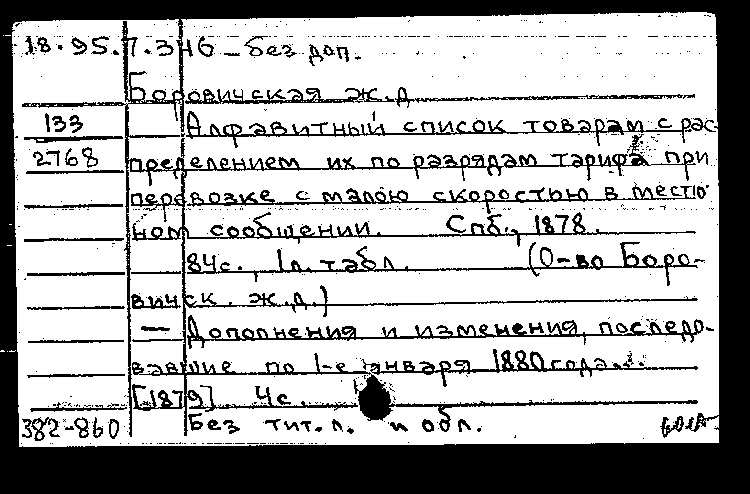 18.95.7.346 - без доп.
Боровичская ж.д
133 Алфавитный список товарам с рас-
2768 пределением их по разрядам тарифа при
перевозке с малою скоростью в мест-
ном сообщении. Спб., 1878.
84с., 1л. табл. (О-во Боро-
вичск. ж.д.)
— Дополнения и изменения, последо-
вавшие по 1-е января 1880 года...
[1879] 4с.
382-860 Без тит.л. и обл.